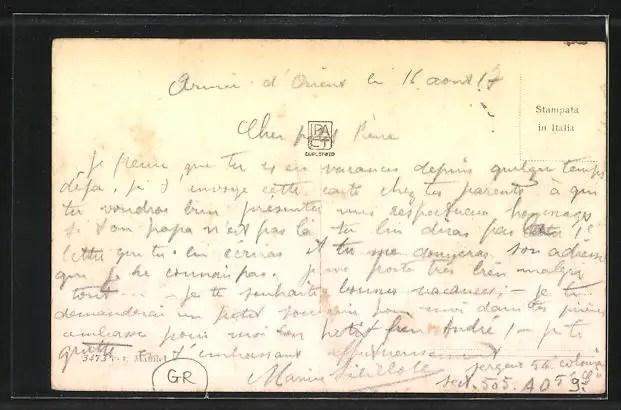 Armée d'Orient le 16 août 17
Stampata
in Italia
Cher petit Pierre
Je pense que tu es en vacances depuis quelque temps
déjà, je t'envoye cette carte chez tes parents à qui
tu voudras bien présenter mes respectueux hommages
si ton papa n'est pas là tu lui diras par
lettre que tu lui écriras et tu me donneras son adresse
que je ne connais pas. je me porte très bien malgré
tout... - je te souhaite bonnes vacances; - je te
demanderai un petit souvenir pour moi dans tes prières
embrasse pour moi ton petit frère André! - je te
quitte en t'embrassant affectueusement
3473
Marius
sergent 54 colonial
sect. 505. A O
GR